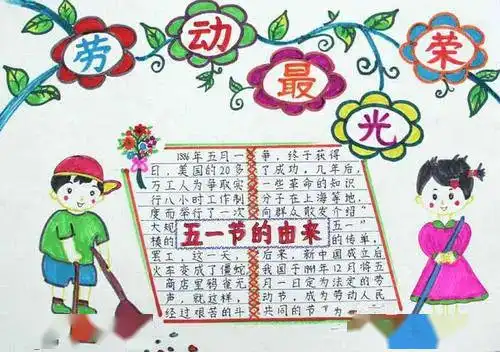 劳动最光荣
1886年五月一
日,美国的20多
万工人为争取实
行八小时工作制
度而举行了一次
大规
模的
罢工,这一天,
火车变成了僵蛇
商店里鸦雀元
声,就这样,
经过艰苦的斗
五一节的由来
争,终于获得
了成功,几年后,
一些革命的知识
分子在上海等地,
向群众散发介绍
五一"
的传单,
后来,新中国成立后
我国于1949年12月将五
月一日定为法定的劳
动节,成为劳动人民
共同的节